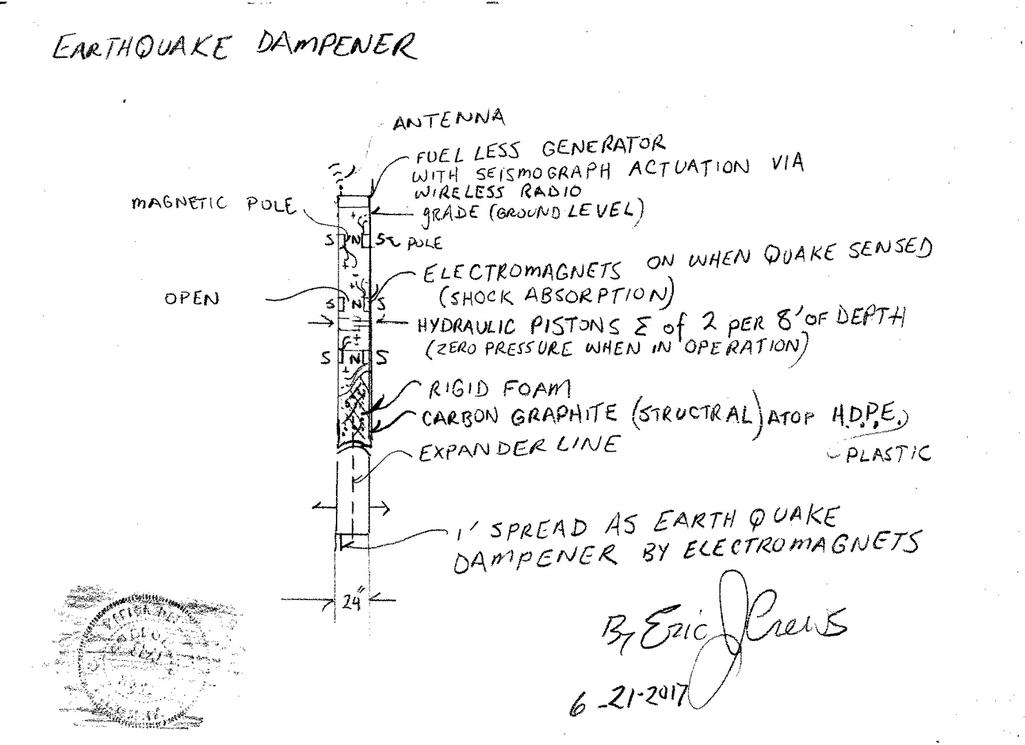 EARTHQUAKE DAMPENER
ANTENNA
FUEL LESS GENERATOR
WITH SEISMOGRAPH ACTUATION VIA
WIRELESS RADIO
MAGNETIC POLE
GRADE (GROUND LEVEL)
S N S POLE
ELECTROMAGNETS ON WHEN QUAKE SENSED
(SHOCK ABSORPTION)
OPEN
S N S
HYDRAULIC PISTONS Σ of 2 PER 8' OF DEPTH
(ZERO PRESSURE WHEN IN OPERATION)
S N S
RIGID FOAM
CARBON GRAPHITE (STRUCTRAL) ATOP H.D.P.E.
PLASTIC
EXPANDER LINE
1' SPREAD AS EARTH QUAKE
DAMPENER BY ELECTROMAGNETS
24"
By Eric J Crews
6-21-2017